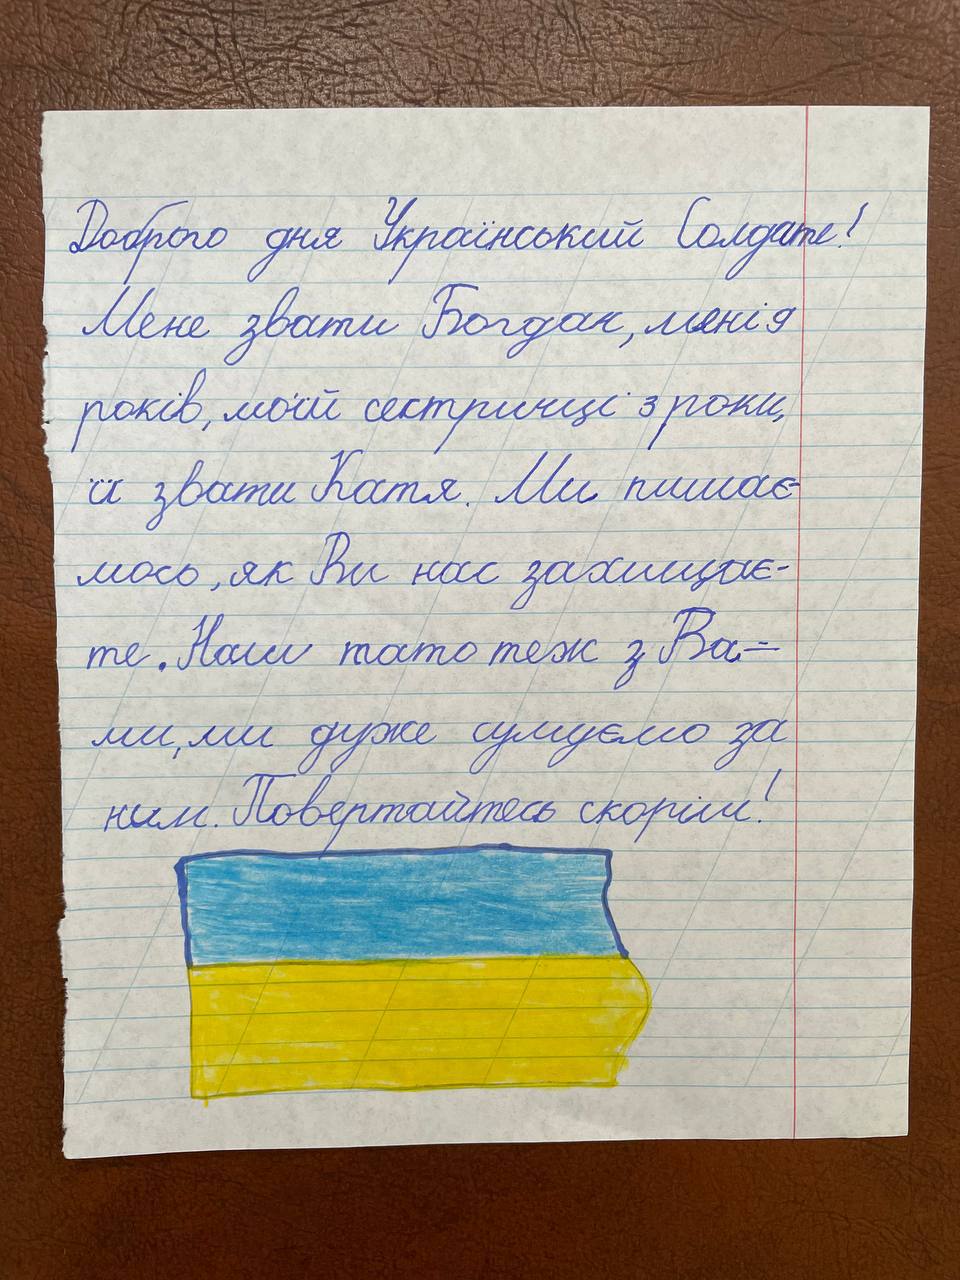 Доброго дня Український Солдате!
Мене звати Богдан, мені 9
років, моїй сестричці 3 роки,
її звати Катя. Ми пишає-
мось, як Ви нас захищає-
те. Наш тато теж з Ва-
ми, ми дуже сумуємо за
ним. Повертайтесь скоріш!